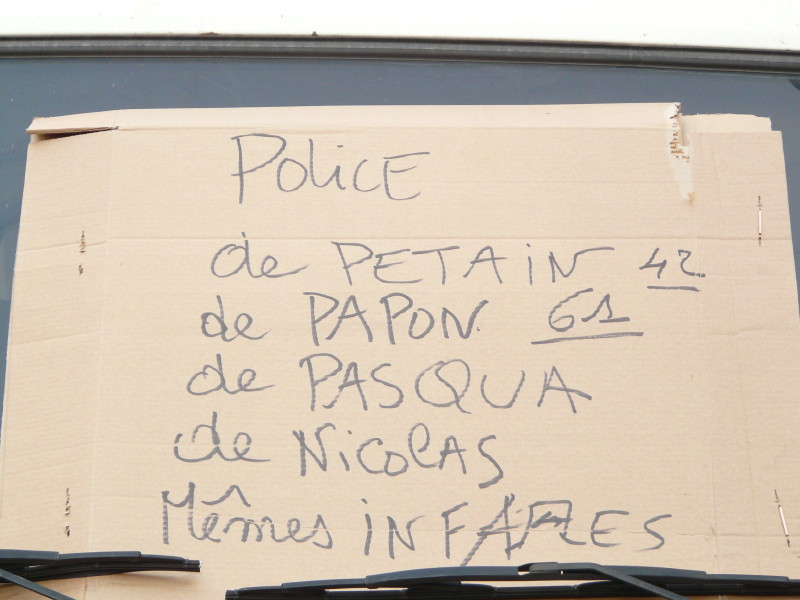 POLiCE
de PETAiN 42.
de PAPON. 61
de PASQUA
de NiCOLAS
Mêmes iNFÂMES